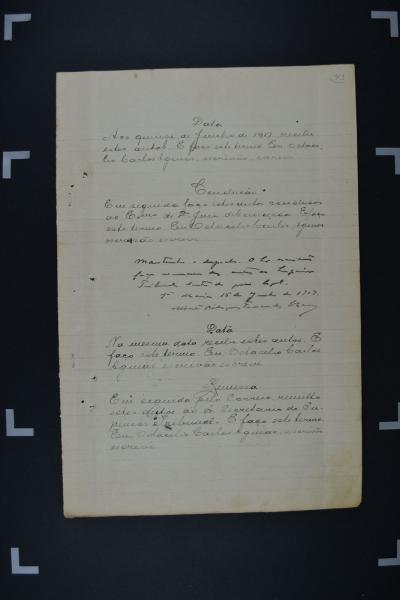 Data
Aos quinze de Junho de 1917 recebi
estes autos. E faço este termo. Eu Octacilio
Carlos Aguiar, escrivão, escrevi
Conclusão
Em seguida faço estes autos conclusos
ao Exmo. Sr. Dr. Juiz de
E faço
este termo. Eu Octacilio Carlos Aguiar
escrivão escrevi
Mantenho o despacho. O Sr. escrivão
faça remessa dos autos ao Superior
Tribunal dentro do prazo legal.
15 de Junho de 1917.
Data
Na mesma data recebi estes autos. E
faço este termo. Eu, Octacilio Carlos
Aguiar escrivão escrevi
Remessa
Em seguida pelo Correio, remetto
estes autos ao Sr. Secretario do Su-
perior Tribunal. E faço este termo.
Eu Octacilio Carlos Aguiar, escrivão
escrevi